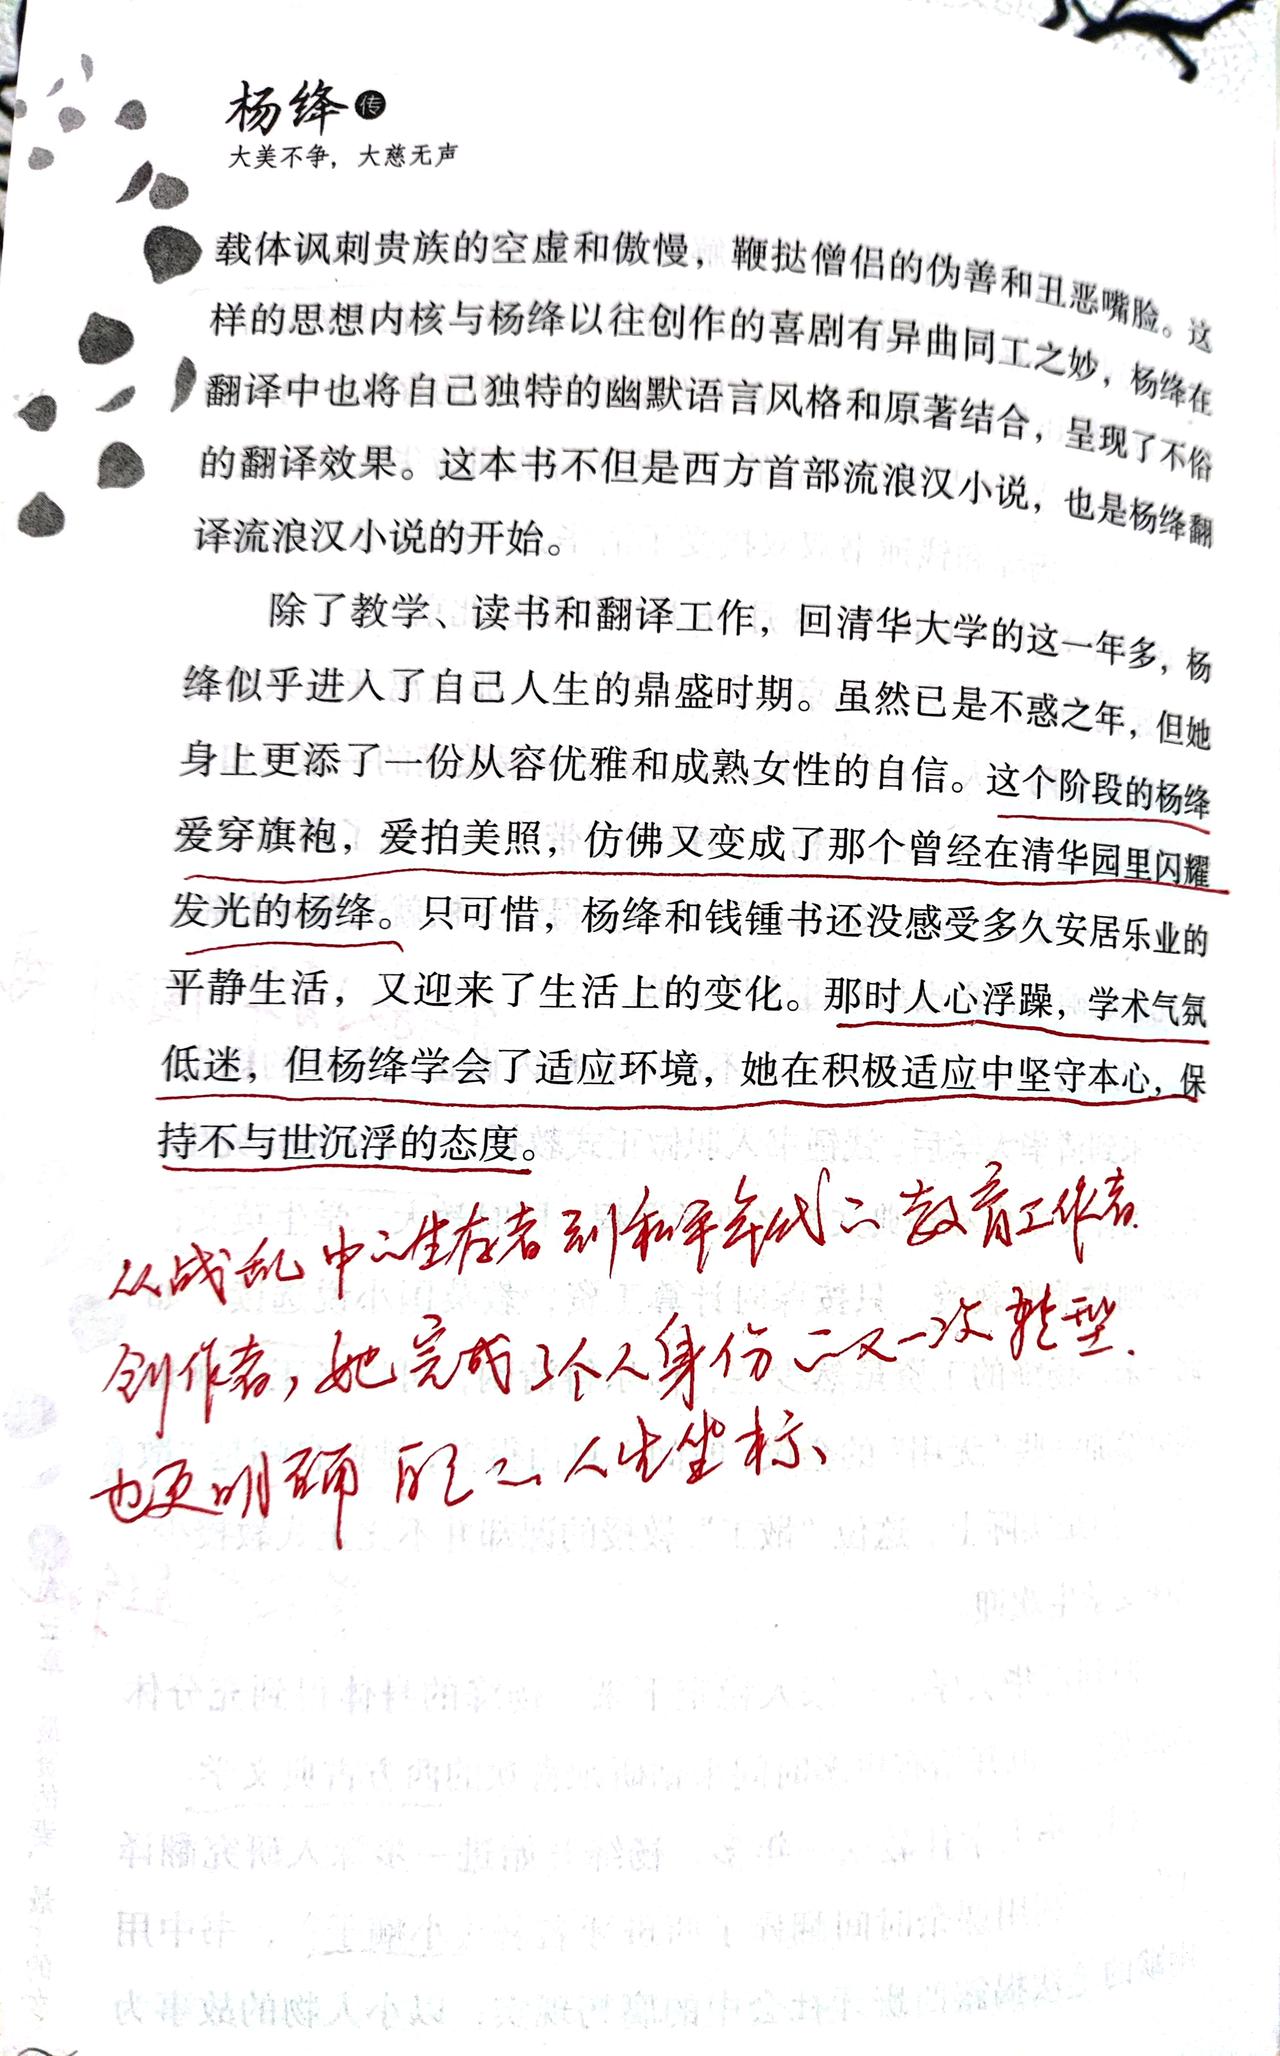 杨绛传
大美不争，大慈无声
载体讽刺贵族的空虚和傲慢，鞭挞僧侣的伪善和丑恶嘴脸。这
样的思想内核与杨绛以往创作的喜剧有异曲同工之妙，杨绛在
翻译中也将自己独特的幽默语言风格和原著结合，呈现了不俗
的翻译效果。这本书不但是西方首部流浪汉小说，也是杨绛翻
译流浪汉小说的开始。
除了教学、读书和翻译工作，回清华大学的这一年多，杨
绛似乎进入了自己人生的鼎盛时期。虽然已是不惑之年，但她
身上更添了一份从容优雅和成熟女性的自信。这个阶段的杨绛
爱穿旗袍，爱拍美照，仿佛又变成了那个曾经在清华园里闪耀
发光的杨绛。只可惜，杨绛和钱锺书还没感受多久安居乐业的
平静生活，又迎来了生活上的变化。那时人心浮躁，学术气氛
低迷，但杨绛学会了适应环境，她在积极适应中坚守本心，保
持不与世沉浮的态度。
从战乱中的生存者到和平年代的教育工作者
创作者，她完成了个人身份的又一次转型.
也更明确自己的人生坐标、